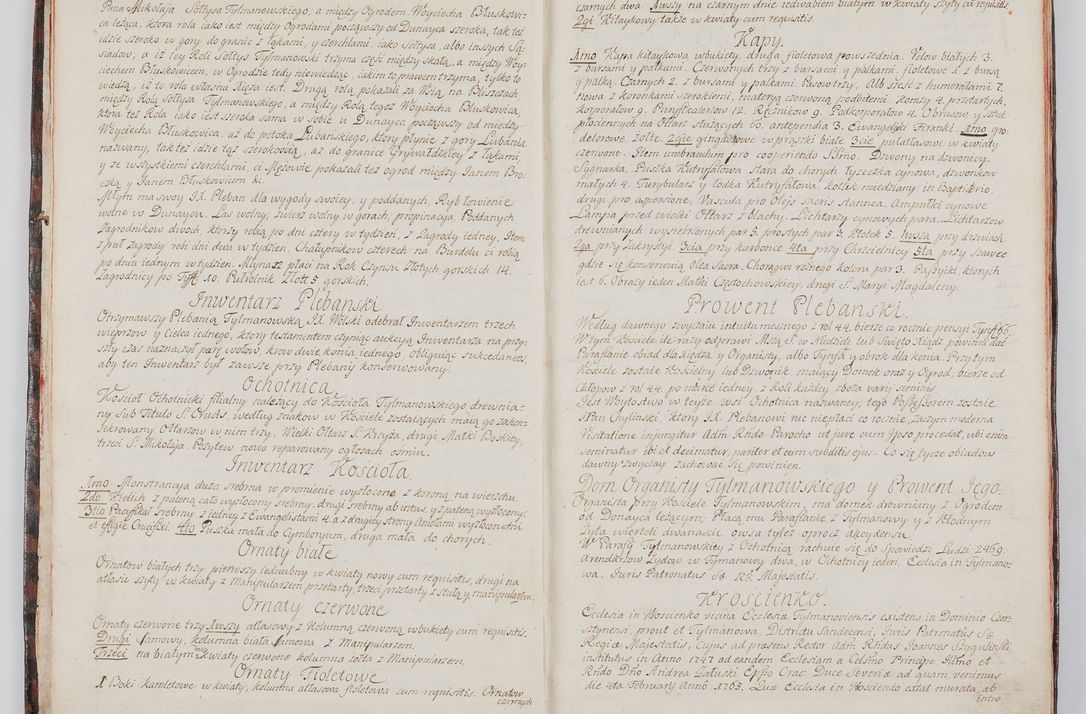 Pana Mikołaja Sołtysa Tylmanowskiego, a między Ogrodem Woyciecha Bluskowi-
ca leżąca, ktora rola iako iest między Ogrodami począwszy od Dunayca szeroka, tak też
idzie szeroko w gory do granic z łąkami, y czerchlami iako Sołtysa, albo inszych Są-
siadow, a iż tey Roli Sołtys Tylmanowski trzyma część między skałą, a między Woy-
ciechem Bluskowicem, w Ogrodzie tedy niewiedząc, iakim to prawem trzyma, tylko to
wiedzą, iż to rola własna Xięza iest. Drugą rolą pokazali za Wsią na Bliszczach,
między Rolą Sołtysa Tylmanowskiego, a między Rolą tegoż Woyciecha Bluskowica,
ktora też Rola iako iest szeroka sama w sobie u Dunayca począwszy od miedzy
Woyciecha Bluskowica, aż do potoka Lubanskiego, ktory płynie z gory Lubania
nazwany, tak też idzie taż szerokością, aż do granic Grywałdzkiey z łąkami,
y ze wszystkiemi czerchlami, ci Mężowie pokazali też ogrod między Janem Bro-
czką y Janem Bluskowicem &c.
Młyn ma swoy JX. Pleban dla wygody swoiey, y poddanych, Ryb łowienie
wolne w Dunaycu. Las wolny, zwierz wolny w gorach, propinacja, Poddanych
Zagrodnikow dwoch, ktorzy robią po dni cztery w tydzien, z Zagrody iedney, Item
z puł zagrody robi dni dwa w tydzien. Chałupnikow czterech na Burdelu ci robią
po dniu iednym w tydzien. Młynarz płaci na Rok Czynszu złotych gorskich 14.
Zagrodnicy po Tyff. 10. Pułrolnik Złoti 5 gorskich.
Inwentarz Plebanski
Otrzymawszy Plebanią Tylmanowską JX. Wolski odebrał Inwentarzem trzech
wieprzow y Cielca iednego, ktory testamentem czyniąc aukcyą Inwentarza na przy-
szły czas naznaczył parę wołow, krow dwie, konia iednego, obliguiąc sukcedanea,
aby ten Inwentarz był zawsze przy Plebanij konserwowany.
Ochotnica
Kościoł Ochotnicki filialny należący do Kościoła Tylmanowskiego drewnia-
ny Sub Titulo S. Crucis, według znakow w Kościele zostaiących maią go za kon-
sekrowany, Ołtarzow w nim trzy, Wielki Ołtarz S. Krzyża, drugi Matki Boskiey,
trzeci S. Mikołaja. Pozytew nowo reparowany o głosach osmiu.
Inwentarz Kościoła.
1mo Monstrancya duża srebrna w promienie wyzłocone z koroną na wierzchu.
2do. Kielich z pateną cało wyzłocony srebrny, drugi srebrny ab intus y z pateną wyzłocony.
3tio Pacyfikał srebrny z iedney z Ewangelistami 4. a z drugiey strony Aniołami wyzłoconemi
et effigie Crucifixi. 4to Puszka mała do Cymborjum, druga mała do chorych.
Ornaty białe
Ornatow białych trzy pierwszy iedwabny w kwiaty nowy cum requisitis, drugi na
atlasie szyty w kwiaty z Manipularzem przetarty, trzeci przetarty z stułą y manipularzem.
Ornaty czerwone
Ornaty czerwone trzy 1wszy atlasowy z kolumną czerwoną w bukiety cum requisitis.
Drugi zimowy, kolumna biała zimowa z Manipularzem.
Trzeci na białym dnie kwiaty czerwone kolumna żołta z Manipularzem.
Ornaty Fioletowe
1. Boki kamletowe w kwiaty, kolumna atlasowa fioletowa cum requisitis. Ornatow
czarnych
czarnych dwa. 1wszy na czarnym dnie iedwabiem białym w kwiaty szyty cũ requisitis.
2gi Kitaykowy także w kwiaty cum requisitis.
Kapy.
1mo Kapa kitaykowa w bukiety, druga fioletowa powszednia. Velow białych 3.
z bursami y palkami. Czerwonych trzy z bursami y palkami. fioletowe 1. z bursą
y palką. Czarnych 2. z bursami y palkami. Pasow trzy, Alb sześć z humerałami 7.
Nowa z koronkami szerokiemi, materyą czerwoną podbitemi, komży 4. przetartych,
korporałow 9. Puryfikaterzow 12. Ręcznikow 9. Podkorporałow 4. Obrusow y sztuk
płociennych na Ołtarz służących 60. antependia 3. Ewangelijki Firanki. 1mo gro-
detorowe żołte. 2gie gingasowe w prążki białe 3cie pułatłasowe w kwiaty
czerwone. Item umbraculum pro cooperiendo SSmo. Dzwony na dzwonicy.
Sygnarka, Puszka Kutryfałowa stara do chorych, łyżeczka cynowa, dzwonkow
małych 4. Turybularz y łodka Kutryfałowa, kotlik miedziany in Baptisterio.
drugi pro aspersione, Vascula pro Oleis Sacris stannea. Ampułki cynowe
Lampa przed wielki Ołtarz z blachy. Lichtarzy cynowych para. Lichtarzow
drewnianych wysrebrzonych par 5. prostych par 3. Kłotek 5. 1wsza przy drzwiach
2ga przy Zakrystyi 3cia przy karbonce 4ta przy Chrzcielnicy 5ta przy szawce
gdzie się konserwuią Olea Sacra. Chorągwi rożnego koloru par 3. Passyiki, ktorych
iest 6. Obrazy ieden Matki Częstochowskiey, drugi S. Maryi Magdaleny.
Prowent Plebanski.
Według dawnego zwyczaiu intuitu mesznego z rol 44. bierze co rocznie pensye Tynff 66.
W tym Kościele ile razy odprawi Mszą S. w Niedzielę lub Swięto Xiądz powinni dać
Parafianie obiad dla Xiędza y Organisty, albo Tynfa y obrok dla konia. Przy tym
Kościele zostaie Kościelny lub Dzwonik maiący Domek oraz y Ogrod, bierze od
Chłopow z rol 44. po miarce iedney, z Roli każdey zboża varij seminis.
Jest Woytostwo w teyże wsi Ochotnica nazwaney, tego Possessorem zostaie
JPan Chylinski ktory JX. Plebanowi nic niepłaci co rocznie, zaczym moderna
Visitatione injungitur Adm Rndo Parocho ut jure cum ipso procedat, ubi enim
seminatur ibi et decimatur, pariter et cum subditis ejus. Co się tycze obiadow
dawny zwyczay zachować się powinien.
Dom Organisty Tylmanowskiego y Prowent Jego.
Organista przy Kościele Tylmanowskim ma domek drewniany z Ogrodem
od Dunayca leżącym; Płacą mu Parafianie z Tylmanowy y z Kłodnym
żyta wierteli dwanaście owsa tyleż oprocz akcydensu.
W Parafij Tylmanowskiey z Ochotnicą rachuie się do Spowiedzi Ludzi 2469.
Arendarzow Zydow w Tylmanowy dwa, w Ochotnicy ieden. Ecclesia in Tylmano-
wa. Juris Patronatus Sæ Ræ Majestatis.
Kroscienko.
Ecclesia in Kroscienko vicina Ecclesiæ Tylmanoviensis existens in Dominio Czor-
sztynensi prout et Tylmanowa, Districtu Sandecensi, Juris Patronatus Sæ
Regiæ Majestatis, Cujus ad præsens Rector Adm Rndus Joannes Szygalinski,
institutus in Anno 1747 ad eandem Ecclesiam a Celsmo Principe Illmo et
Rndo Dno Andrea Załuski Eppo Crac: Duce Severiæ ad quam venimus
die 4ta Februarij Anno 1765. Quæ Ecclesia in Kroscienko extat murata, ab
intro